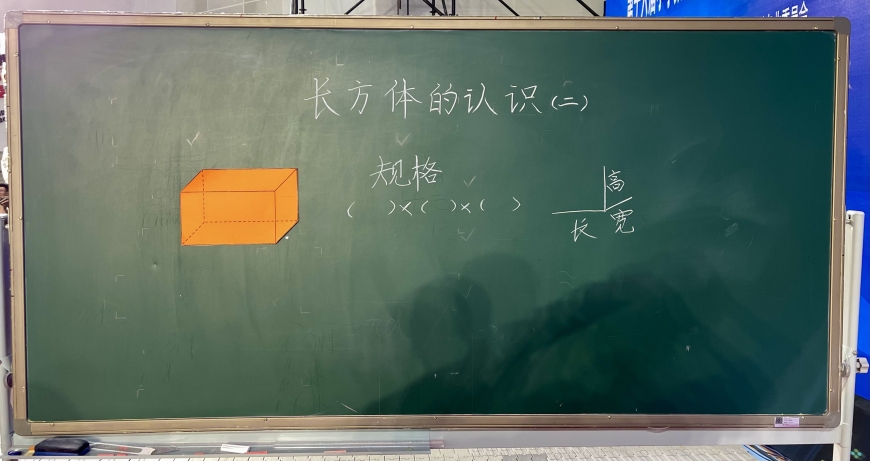 长方体的认识(二)
规格
( )×( )×( )
高
长 宽
委员会